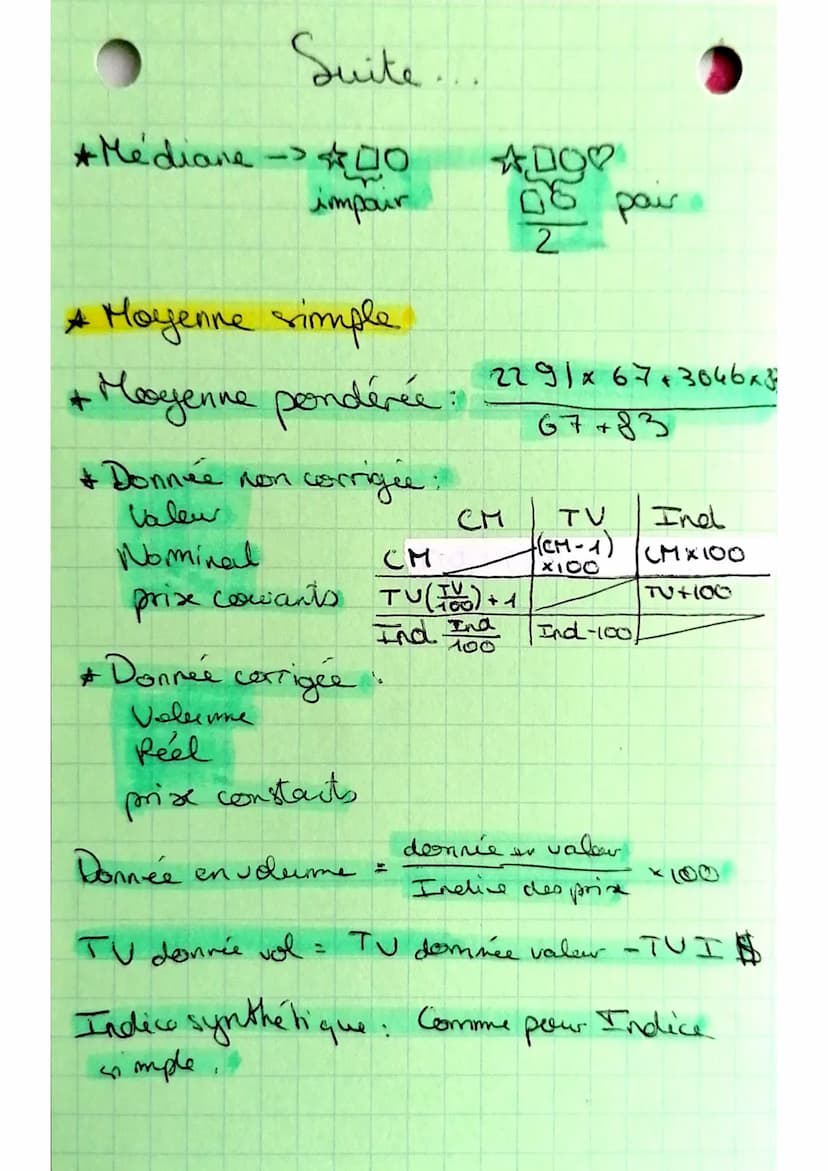 Suite...
* Médiane -> ☆□○ ☆□○♡
impair □○ pair
2
* Moyenne simple
* Moyenne pondérée : 2291 x 67 + 3046 x 8
67 + 83
* Donnée non corrigée :
Valeur CM TV Ind
Nominal CM (CM-1) x100 CM x 100
prix courants TV (TV/100) + 1 TV+100
Ind Ind/100 Ind-100
* Donnée corrigée :
Volume
Réel
prix constants
Donnée en volume = donnée en valeur x 100
Indice des prix
TV donnée vol = TV donnée valeur - TV I $
Indice synthétique : Comme pour Indice
simple.